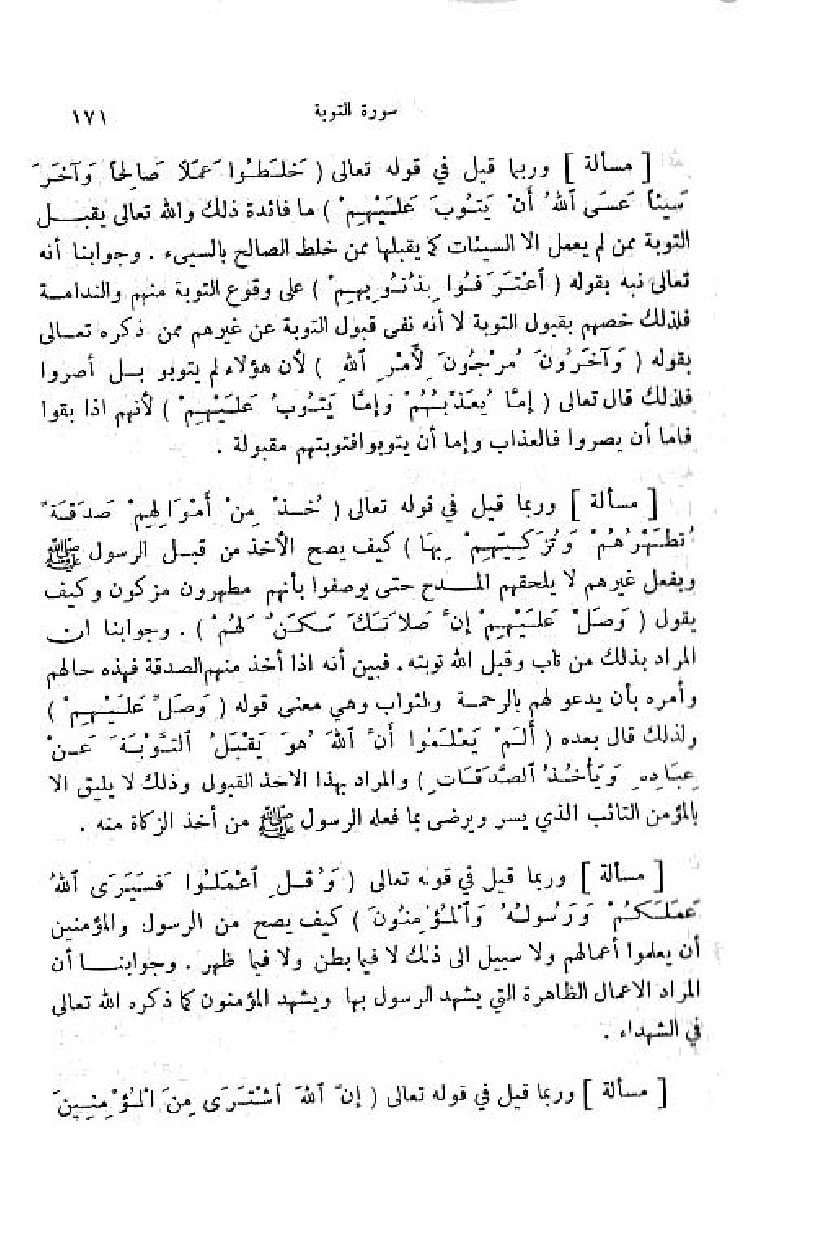 سورة التوبة
١٧١
[ مسألة ] وربما قيل في قوله تعالى ( خَلَطُوا عَمَلًا صَالِحاً وَآخَرَ
سَيِّئاً عَسَى ٱللهُ أَنْ يَتُوبَ عَلَيْهِمْ ) ما فائدة ذلك والله تعالى يقبل
التوبة ممن لم يعمل الا السيئات كما يقبلها ممن خلط الصالح بالسيىء . وجوابنا أنه
تعالى نبه بقوله ( ٱعْتَرَفُوا بِذُنُوبِهِمْ ) على وقوع التوبة منهم والندامة
فلذلك خصهم بقبول التوبة لا أنه نفى قبول التوبة عن غيرهم ممن ذكره تعالى
بقوله ( وَآخَرُونَ مُرْجَوْنَ لِأَمْرِ ٱللهِ ) لأن هؤلاء لم يتوبو بل أصروا
فلذلك قال تعالى ( إِمَّا يُعَذِّبُهُمْ وَإِمَّا يَتُوبُ عَلَيْهِمْ ) لأنهم اذا بقوا
فاما أن يصروا فالعذاب وإما أن يتوبوا فتوبتهم مقبولة .
[ مسألة ] وربما قيل في قوله تعالى ( خُذْ مِنْ أَمْوَالِهِمْ صَدَقَةً
تُطَهِّرُهُمْ وَتُزَكِّيهِمْ بِهَا ) كيف يصح الأخذ من قبل الرسول ﷺ
وبفعل غيرهم لا يلحقهم المدح حتى يوصفوا بأنهم مطهرون مزكون وكيف
يقول ( وَصَلِّ عَلَيْهِمْ إِنَّ صَلَاتَكَ سَكَنٌ لَهُمْ ) . وجوابنا ان
المراد بذلك من تاب وقبل الله توبته . فبين أنه اذا أخذ منهم الصدقة فهذه حالهم
وأمره بأن يدعو لهم بالرحمة والثواب وهي معنى قوله ( وَصَلِّ عَلَيْهِمْ )
ولذلك قال بعده ( أَلَمْ يَعْلَمُوا أَنَّ ٱللهَ هُوَ يَقْبَلُ ٱلتَّوْبَةَ عَنْ
عِبَادِهِ وَيَأْخُذُ ٱلصَّدَقَاتِ ) والمراد بهذا الاخذ القبول وذلك لا يليق الا
بالمؤمن التائب الذي يسر ويرضى بما فعله الرسول ﷺ من أخذ الزكاة منه .
[ مسألة ] وربما قيل في قوله تعالى ( وَقُلِ ٱعْمَلُوا فَسَيَرَى ٱللهُ
عَمَلَكُمْ وَرَسُولُهُ وَٱلْمُؤْمِنُونَ ) كيف يصح من الرسول والمؤمنين
أن يعلموا أعمالهم ولا سبيل الى ذلك لا فيما بطن ولا فيما ظهر . وجوابنا أن
المراد الاعمال الظاهرة التي يشهد الرسول بها ويشهد المؤمنون كما ذكره الله تعالى
في الشهداء .
[ مسألة ] وربما قيل في قوله تعالى ( إِنَّ ٱللهَ ٱشْتَرَى مِنَ ٱلْمُؤْمِنِينَ